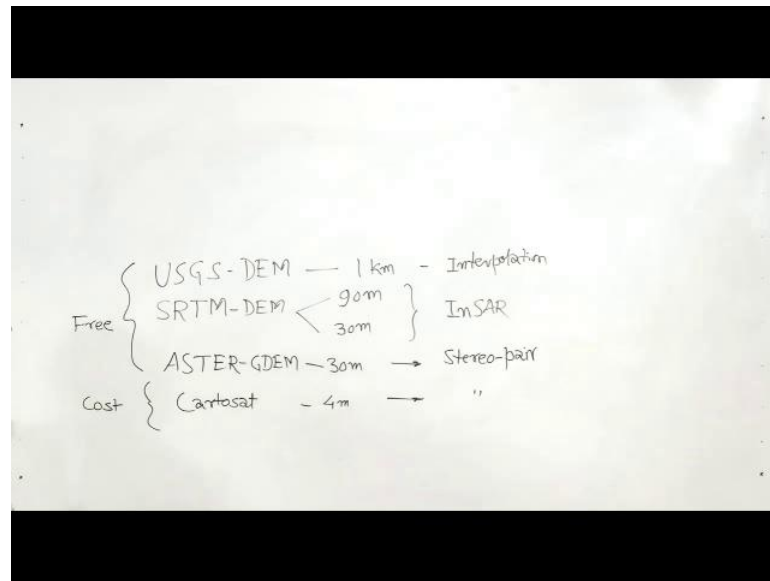 USGS-DEM — 1 km - Interpolation
SRTM-DEM < 90m } InSAR
30m
Free {
ASTER-GDEM — 30m → Stereo-pair
Cost { Cartosat - 4m → "